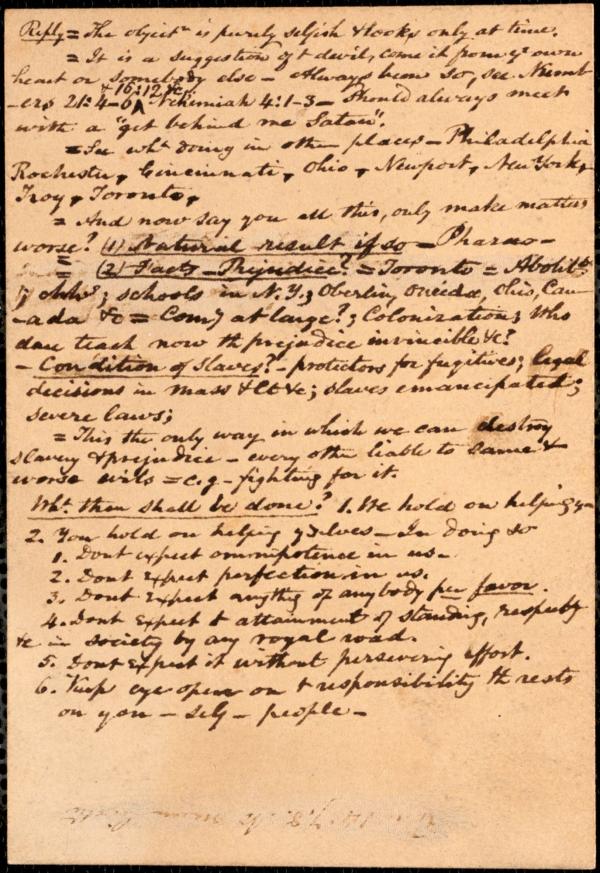 Reply = The object.n is purely selfish & looks only at time.
= It is a suggestion of t devil, come it from yr own
heart or somebody else – Always been so, see Numb
& 16:12 &c;
-ers 21:4-6 ^ Nehemiah 4:1-3 – Should always meet
with a "get behind me Satan".
= See wht. doing in other places – Philadelphia
Rochester, Cincinnati, Ohio, Newport, New York,
Troy, Toronto,
= And now say you all this, only make matters
worse? (1) Natural result if so – Pharao –
= (2) Facts – Prejudice? = Toronto = Abolit.
; schools in N.Y.; Oberlin, Oneida, Ohio, Can
-ada &c = Comy at large?; Colonization; Who
dare teach now th prejudice invincible &c?
– Condition of Slaves? – protectors for fugitives; legal
decisions in Mass & Ct &c; slaves emancipated;
severe laws;
= This the only way in which we can destroy
slavery & prejudice – every other liable to same &
worse evils = e.g – fighting for it.
Wht. then shall be done? 1. We hold on helping y–
2. You hold on helping yrselves – In doing so
1. Dont expect omnipotence in us –
2. Dont expect perfection in us.
3. Dont Expect anythg of anybody per favor.
4. Dont Expect t attainment of standing, respecty
&c in society by any royal road.
5. Dont Expect it without persevering effort.
6. Keep eye open on t responsibility th rests
on you – self – people –